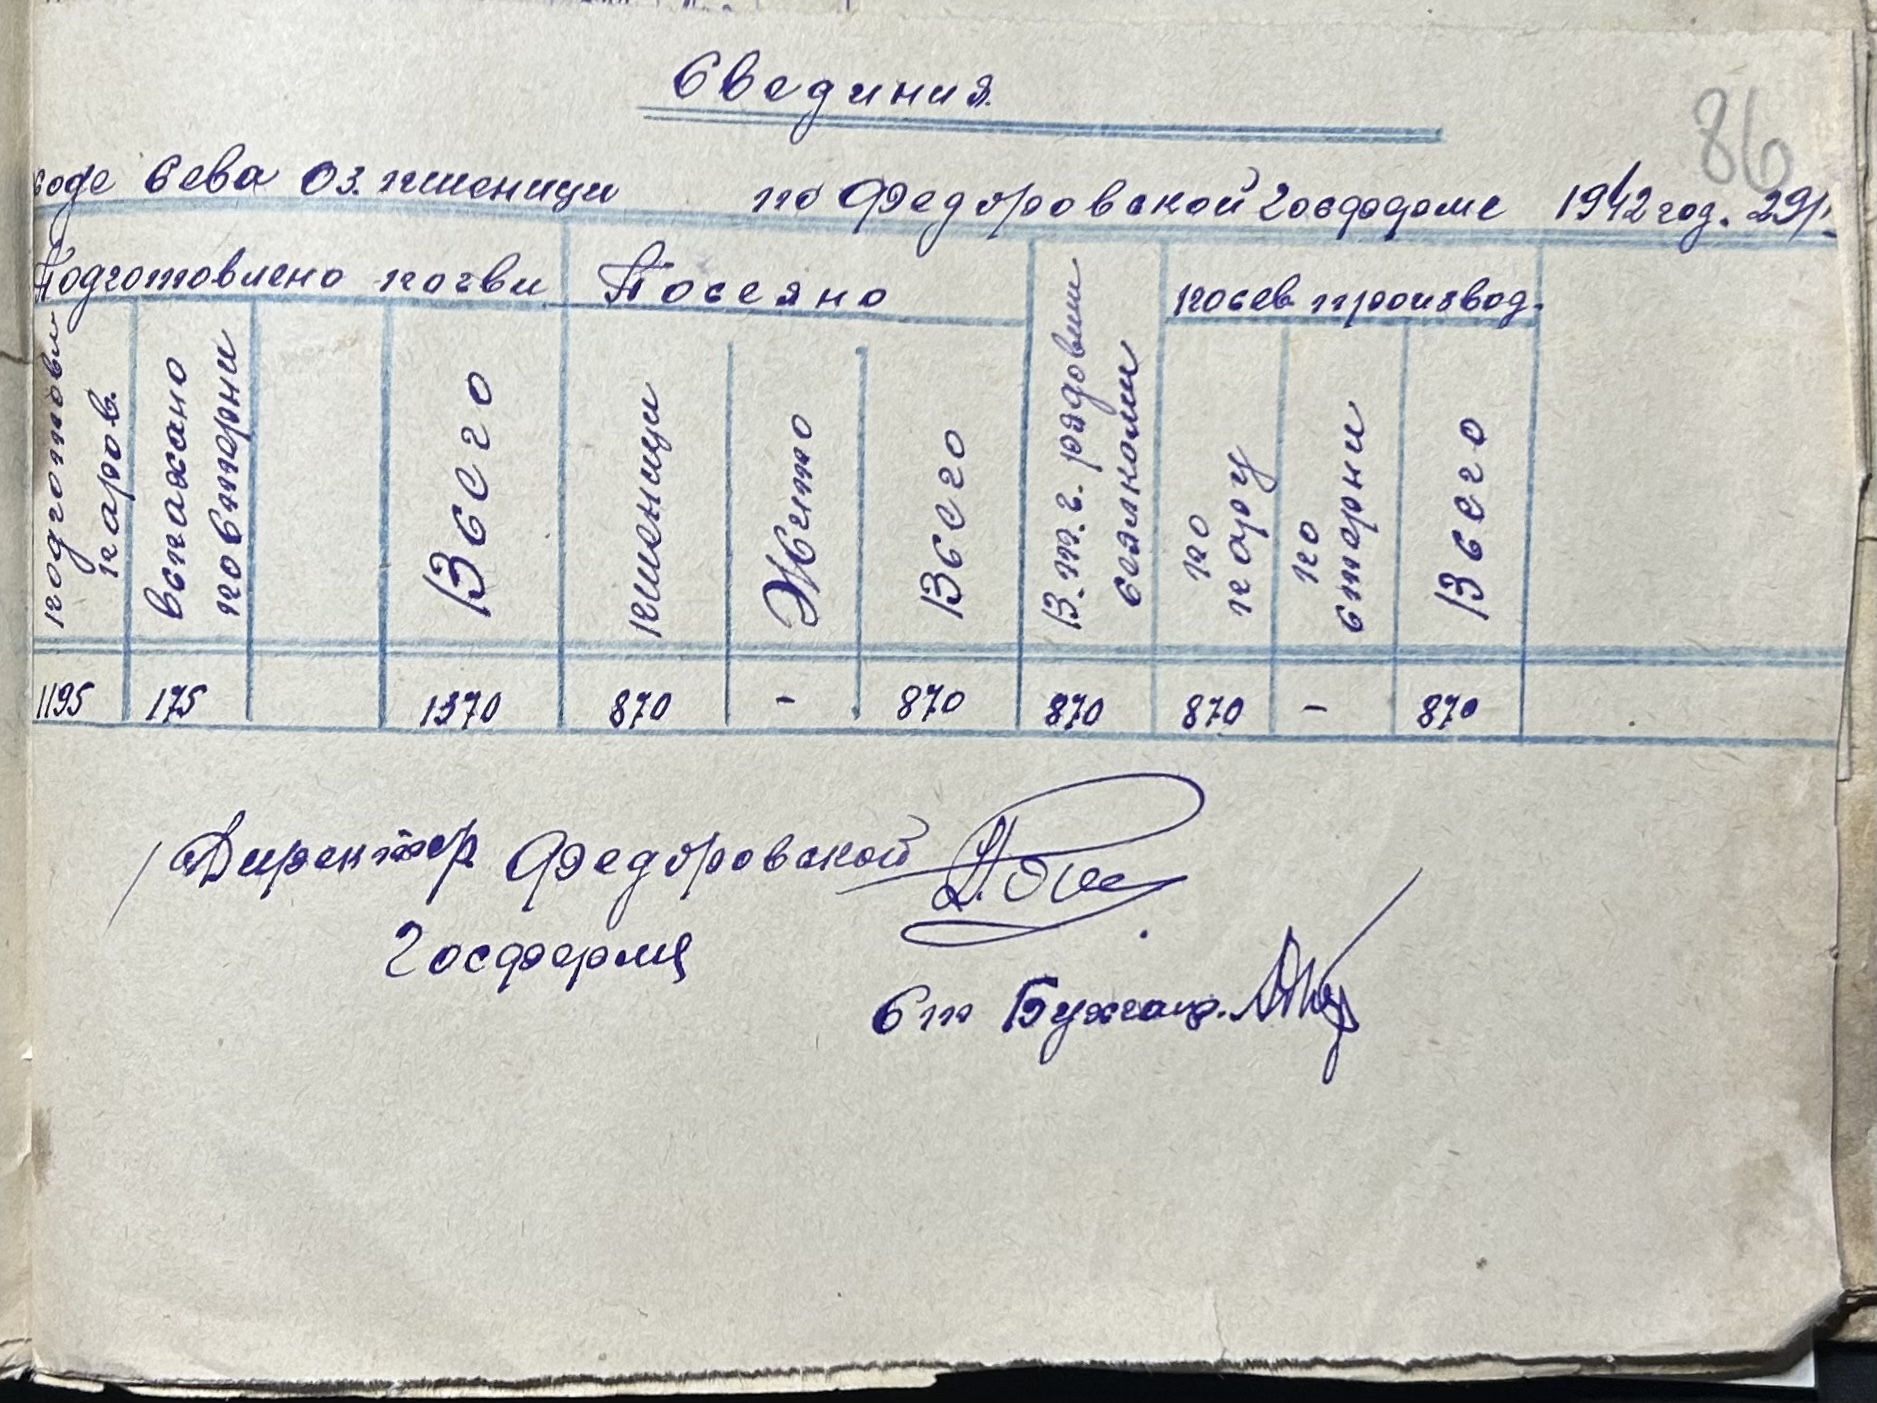 Свединия.
86
ходе Сева Оз. пшеници по Федоровской Госфороме 1942 год. 29/
Подготовлено почви Посеяно посев производ.
подготовлен паров.
вспахано по стерни
Всего
пшеници
Жито
Всего
В т. г. рядовыми сеялками
по пару
по стерни
Всего
1195 175 1370 870 - 870 870 870 - 870
Директор Федоровской
Госфермы
Ст Бухгалт.